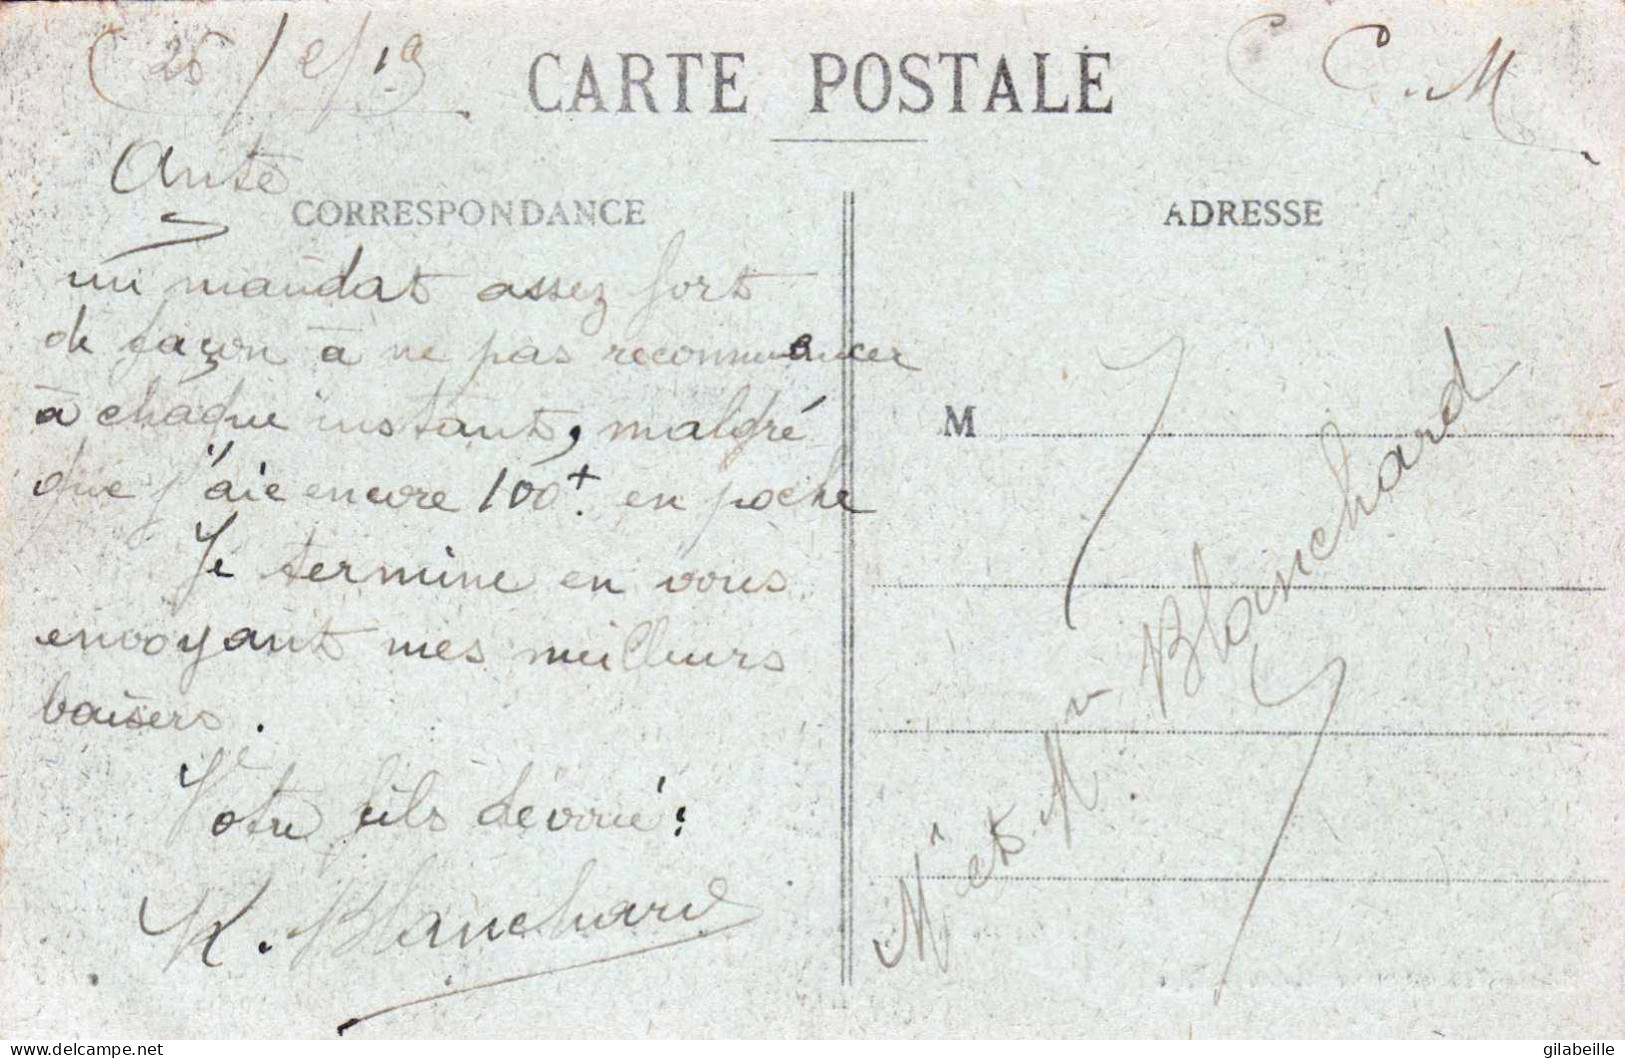 26/2/19
CARTE POSTALE
C.M
CORRESPONDANCE
ADRESSE
un mandat assez fort
de façon à ne pas recommancer
à chaque instant, malgré
que j'aie encore 100f. en poche
Je termine en vous
envoyant mes meilleurs
baisers.
Votre fils dévoué:
Blanchard
M
Mr et Mme Blanchard
gilabeille